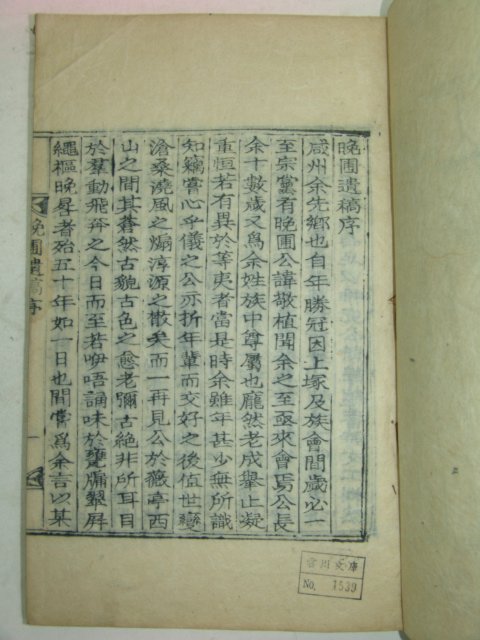 晩圃遺稿序
咸州余先鄉也自年勝冠因上塚及族會間歲必一
至宗黨有晩圃公諱敬植聞余之至亟來會焉公長
余十數歲又爲余姓族中尊屬也龐然老成擧止凝
重恒若有異於等夷者當是時余雖年甚少無所識
知竊嘗心乎儀之公亦折年輩而交好之後値世變
滄桑澆風之煽淳源之散矣而一再見公於薇亭西
山之間其蒼然古貌古色之愈老彌古絶非所耳目
於羣動飛奔之今日而至若咿唔誦味於甕牖翳屛
繩樞晩晷者殆五十年如一日也間嘗爲余言以某
晩圃遺稿序
一
No. 1539